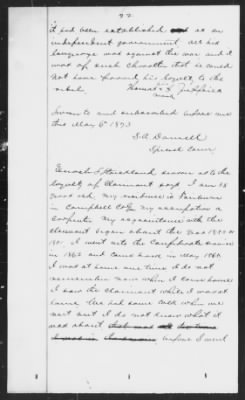 22
it had been established as an
independent government all his
language was against the war and it
was of such character that he could
not have proved his loyalty to the
rebels. Thomas X
mark
Sworn to and subscribed before me
this May 6th 1873
S.A. Darnell
Special Comr
Enoch Strickland sworn as to the
loyalty of Claimant says I am 38
years old, my residence is Fairburn
in Campbell Co Ga my occupation a
carpenter my acquaintance with the
claimant began about the year 1850 or
1851. I went into the Confederate service
in 1862 and came home in May 1865
I was at home one time I do not
remember now when I came home
I saw the claimant while I was at
home We had some talk when we
met but I do not know what it
was about
before I went